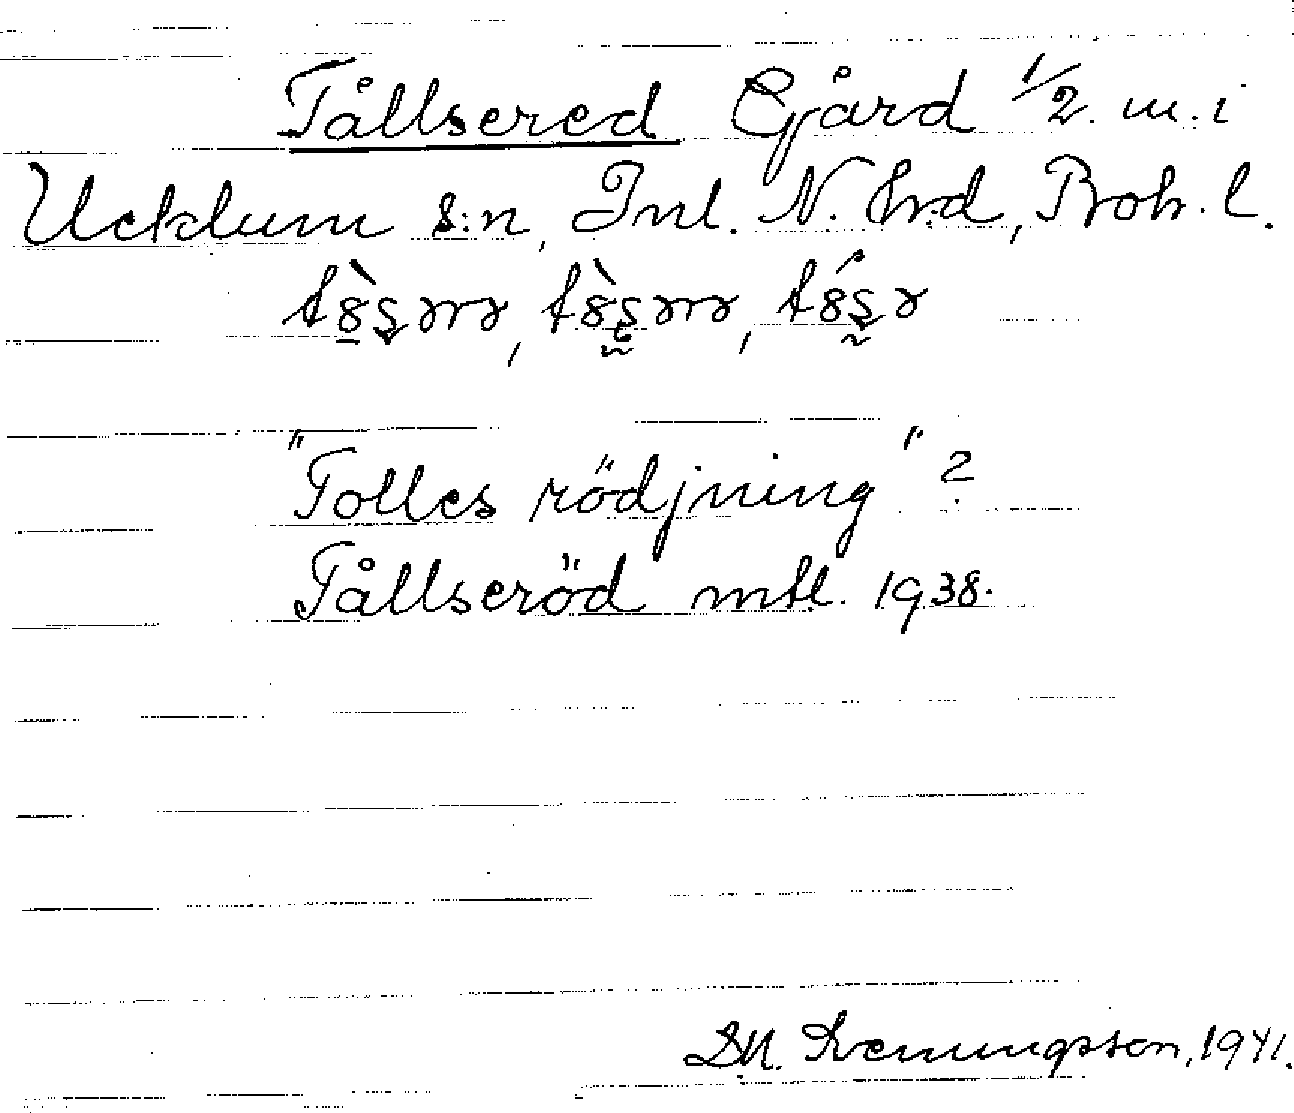 Tållsered Gård 1/2 m. i
Ucklum s:n, Inl. N. Hrd, Boh. l.
"Tolles rödjning"?
Tållseröd mtl. 1938.
1941.